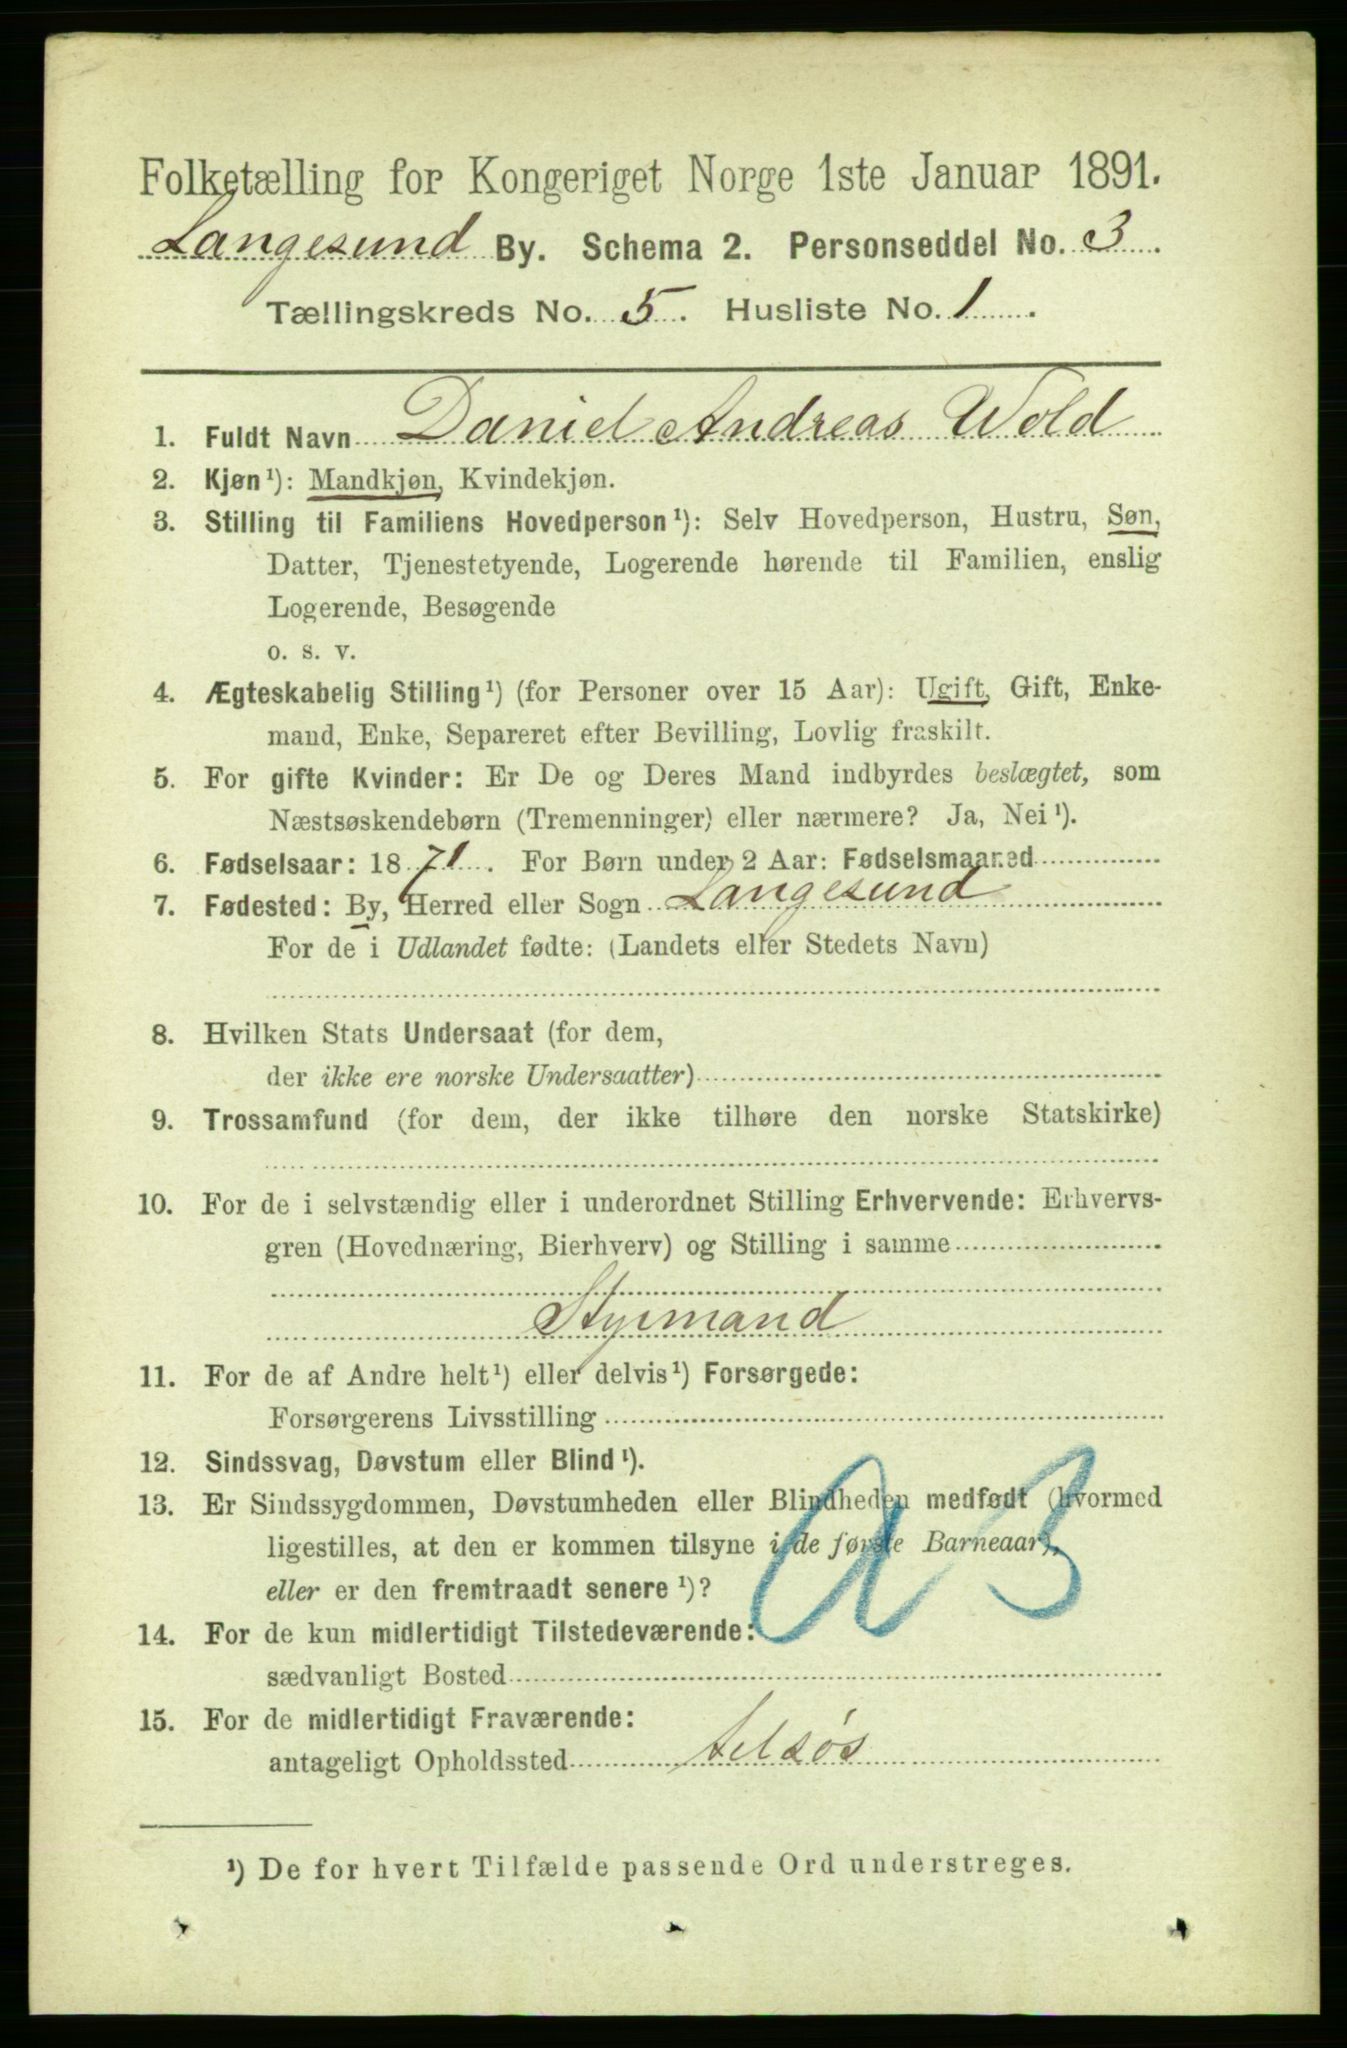 Folketælling for Kongeriget Norge 1ste Januar 1891.
Langesund By. Schema 2. Personseddel No. 3.
Tællingskreds No. 5. Husliste No. 1.
1. Fuldt Navn Daniel Andreas Wold
2. Kjøn¹): Mandkjøn, Kvindekjøn.
3. Stilling til Familiens Hovedperson¹): Selv Hovedperson, Hustru, Søn,
Datter, Tjenestetyende, Logerende hørende til Familien, enslig
Logerende, Besøgende
o. s. v.
4. Ægteskabelig Stilling¹) (for Personer over 15 Aar): Ugift, Gift, Enke-
mand, Enke, Separeret efter Bevilling, Lovlig fraskilt.
5. For gifte Kvinder: Er De og Deres Mand indbyrdes beslægtet, som
Næstsøskendebørn (Tremenninger) eller nærmere? Ja, Nei¹).
6. Fødselsaar: 1871. For Børn under 2 Aar: Fødselsmaaned
7. Fødested: By, Herred eller Sogn Langesund
For de i Udlandet fødte: (Landets eller Stedets Navn)
8. Hvilken Stats Undersaat (for dem,
der ikke ere norske Undersaatter)
9. Trossamfund (for dem, der ikke tilhøre den norske Statskirke)
10. For de i selvstændig eller i underordnet Stilling Erhvervende: Erhvervs-
gren (Hovednæring, Bierhverv) og Stilling i samme
Styrmand
11. For de af Andre helt¹) eller delvis¹) Forsørgede:
Forsørgerens Livsstilling
12. Sindssvag, Døvstum eller Blind¹).
13. Er Sindssygdommen, Døvstumheden eller Blindheden medfødt (hvormed
ligestilles, at den er kommen tilsyne i de første Barneaar),
eller er den fremtraadt senere¹)?
14. For de kun midlertidigt Tilstedeværende:
sædvanligt Bosted
15. For de midlertidigt Fraværende:
antageligt Opholdssted tilsøs
¹) De for hvert Tilfælde passende Ord understreges.